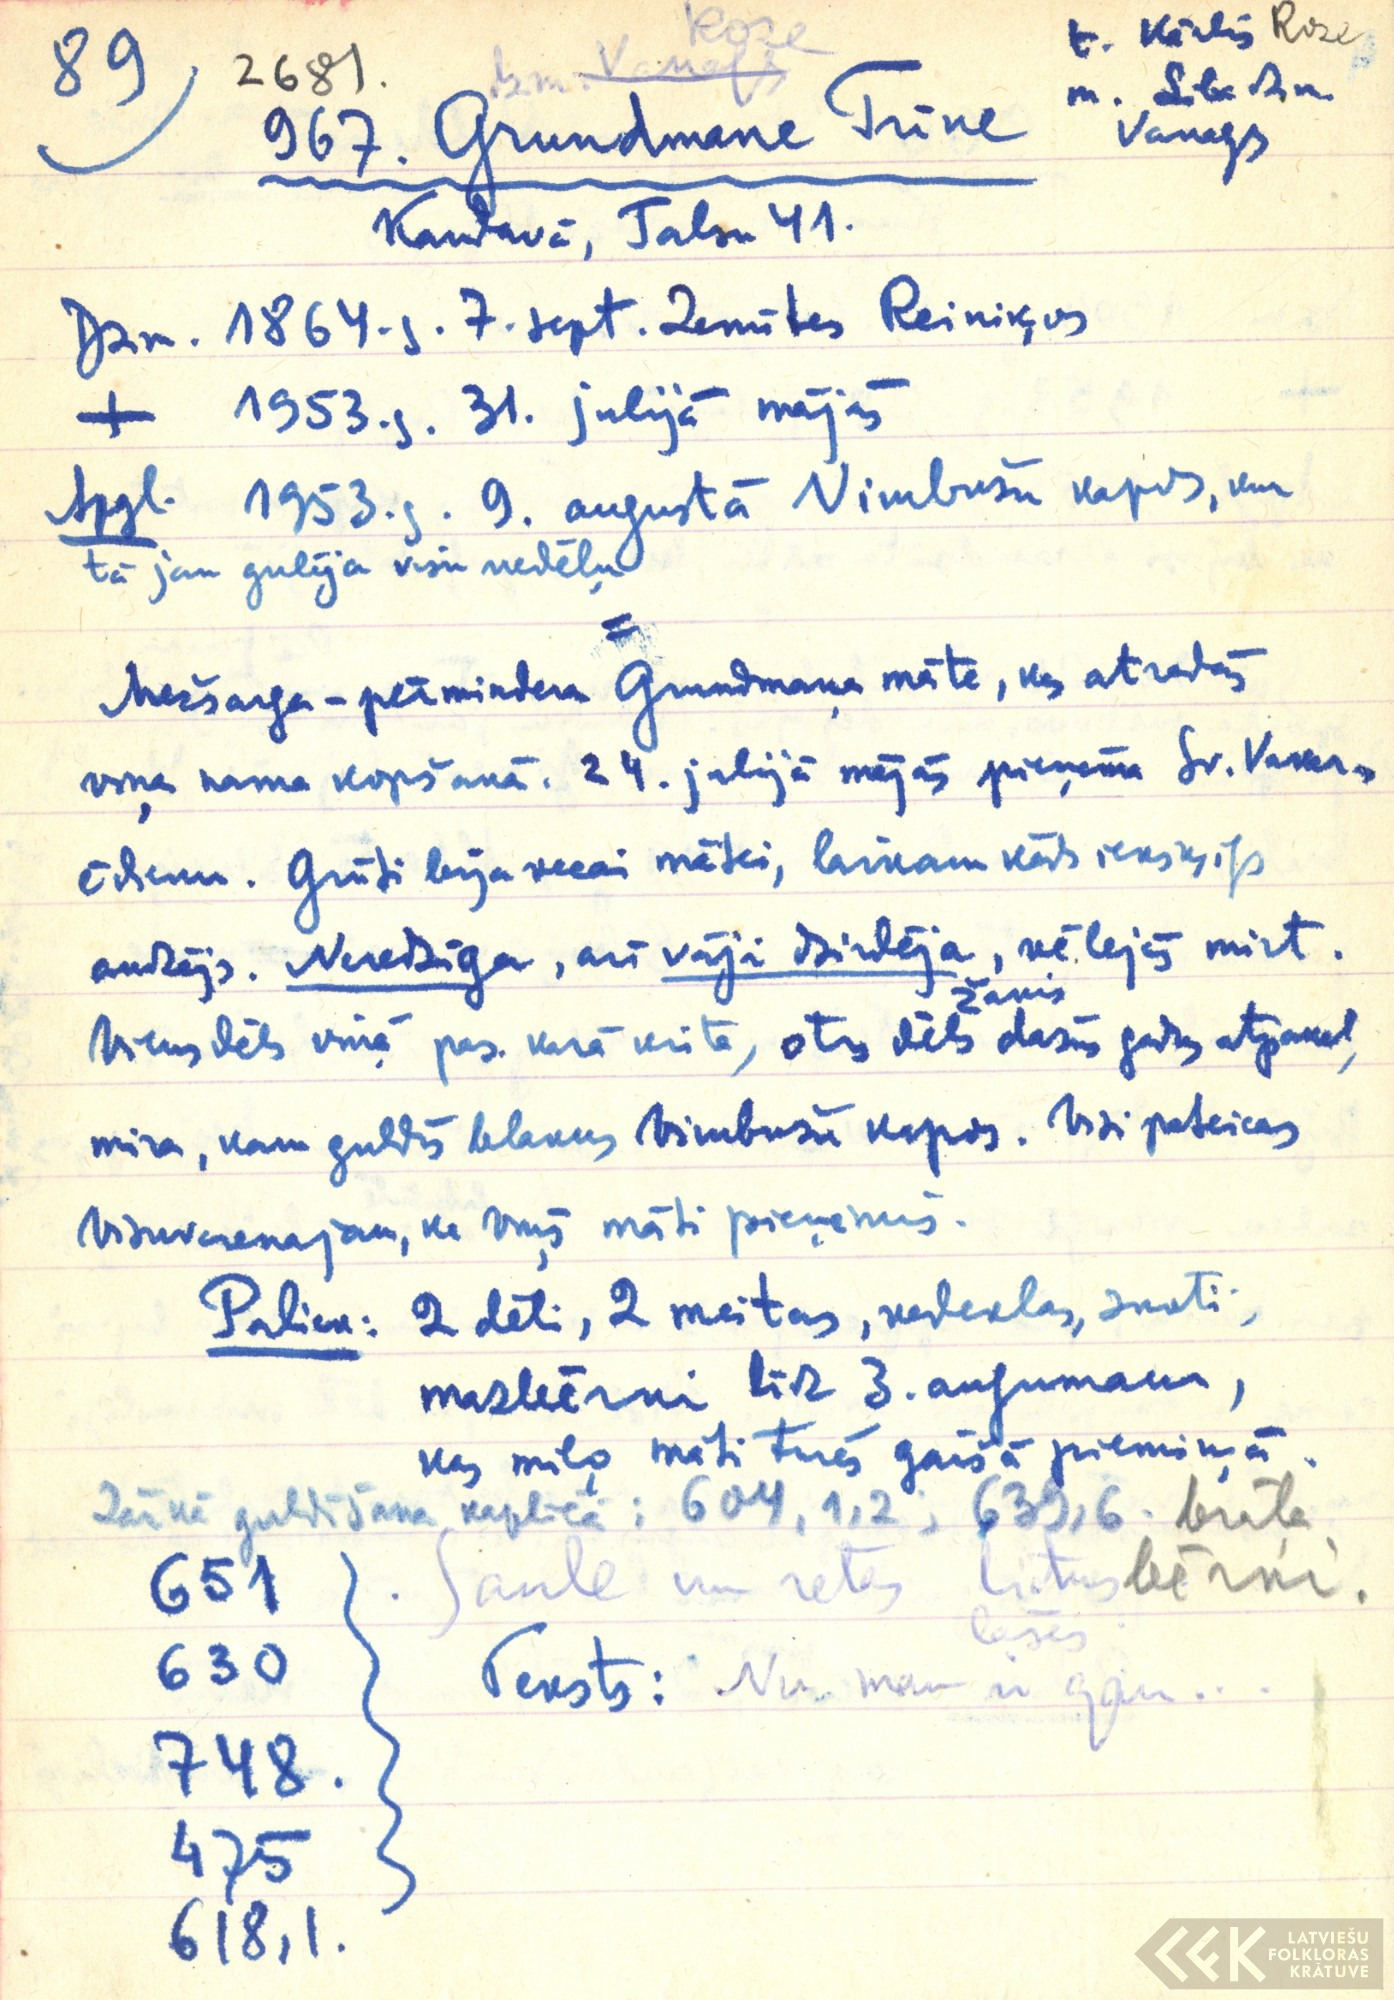 89)
2681.
Roze
dzm. Vanags
t. Kārlis Roze
m. Lība dzm.
Vanags
967. Grundmane Trīne
Kandavā, Talsu 41.
Dzm. 1864. g. 7. sept. Zemītes Reiniķos
+ 1953. g. 31. julijā mājās
Apgl. 1953. g. 9. augustā Vimbušu kapos, kur
tā jau gulēja visu nedēļu
=
Mežsarga-pērmindera Grundmaņa māte, kas atradās
viņa nama kopšanā. 24. julijā mājās pieņēma Sv. Vakar-
ēdienu. Grūti bija vecai mātei, laikam kāds iekšķīgs
audzējs. Neredzīga, arī vāji dzirdēja, vēlējās mirt.
Žanis
Viens dēls viņā pas. karā krita, otrs dēls dažus gadus atpakaļ,
mira, kam guldīs blakus Vimbušu kapos. Visi pateicas
Visuvarenajam, ka Viņš māti pieņēmis.
Paliek: 2 dēli, 2 meitas, vedeklas, znoti,
mazbērni līdz 3. augumam,
kas mīļo māti turēs gaišā piemiņā.
Zārkā guldīšana kapličā: 604, 1,2; 639,6. brāļa
bērni.
651
. Saule un retas lietus
lāses
630
Teksts: Nu man ir gan...
748.
475
618,1.
LATVIEŠU
FOLKLORAS
KRĀTUVE